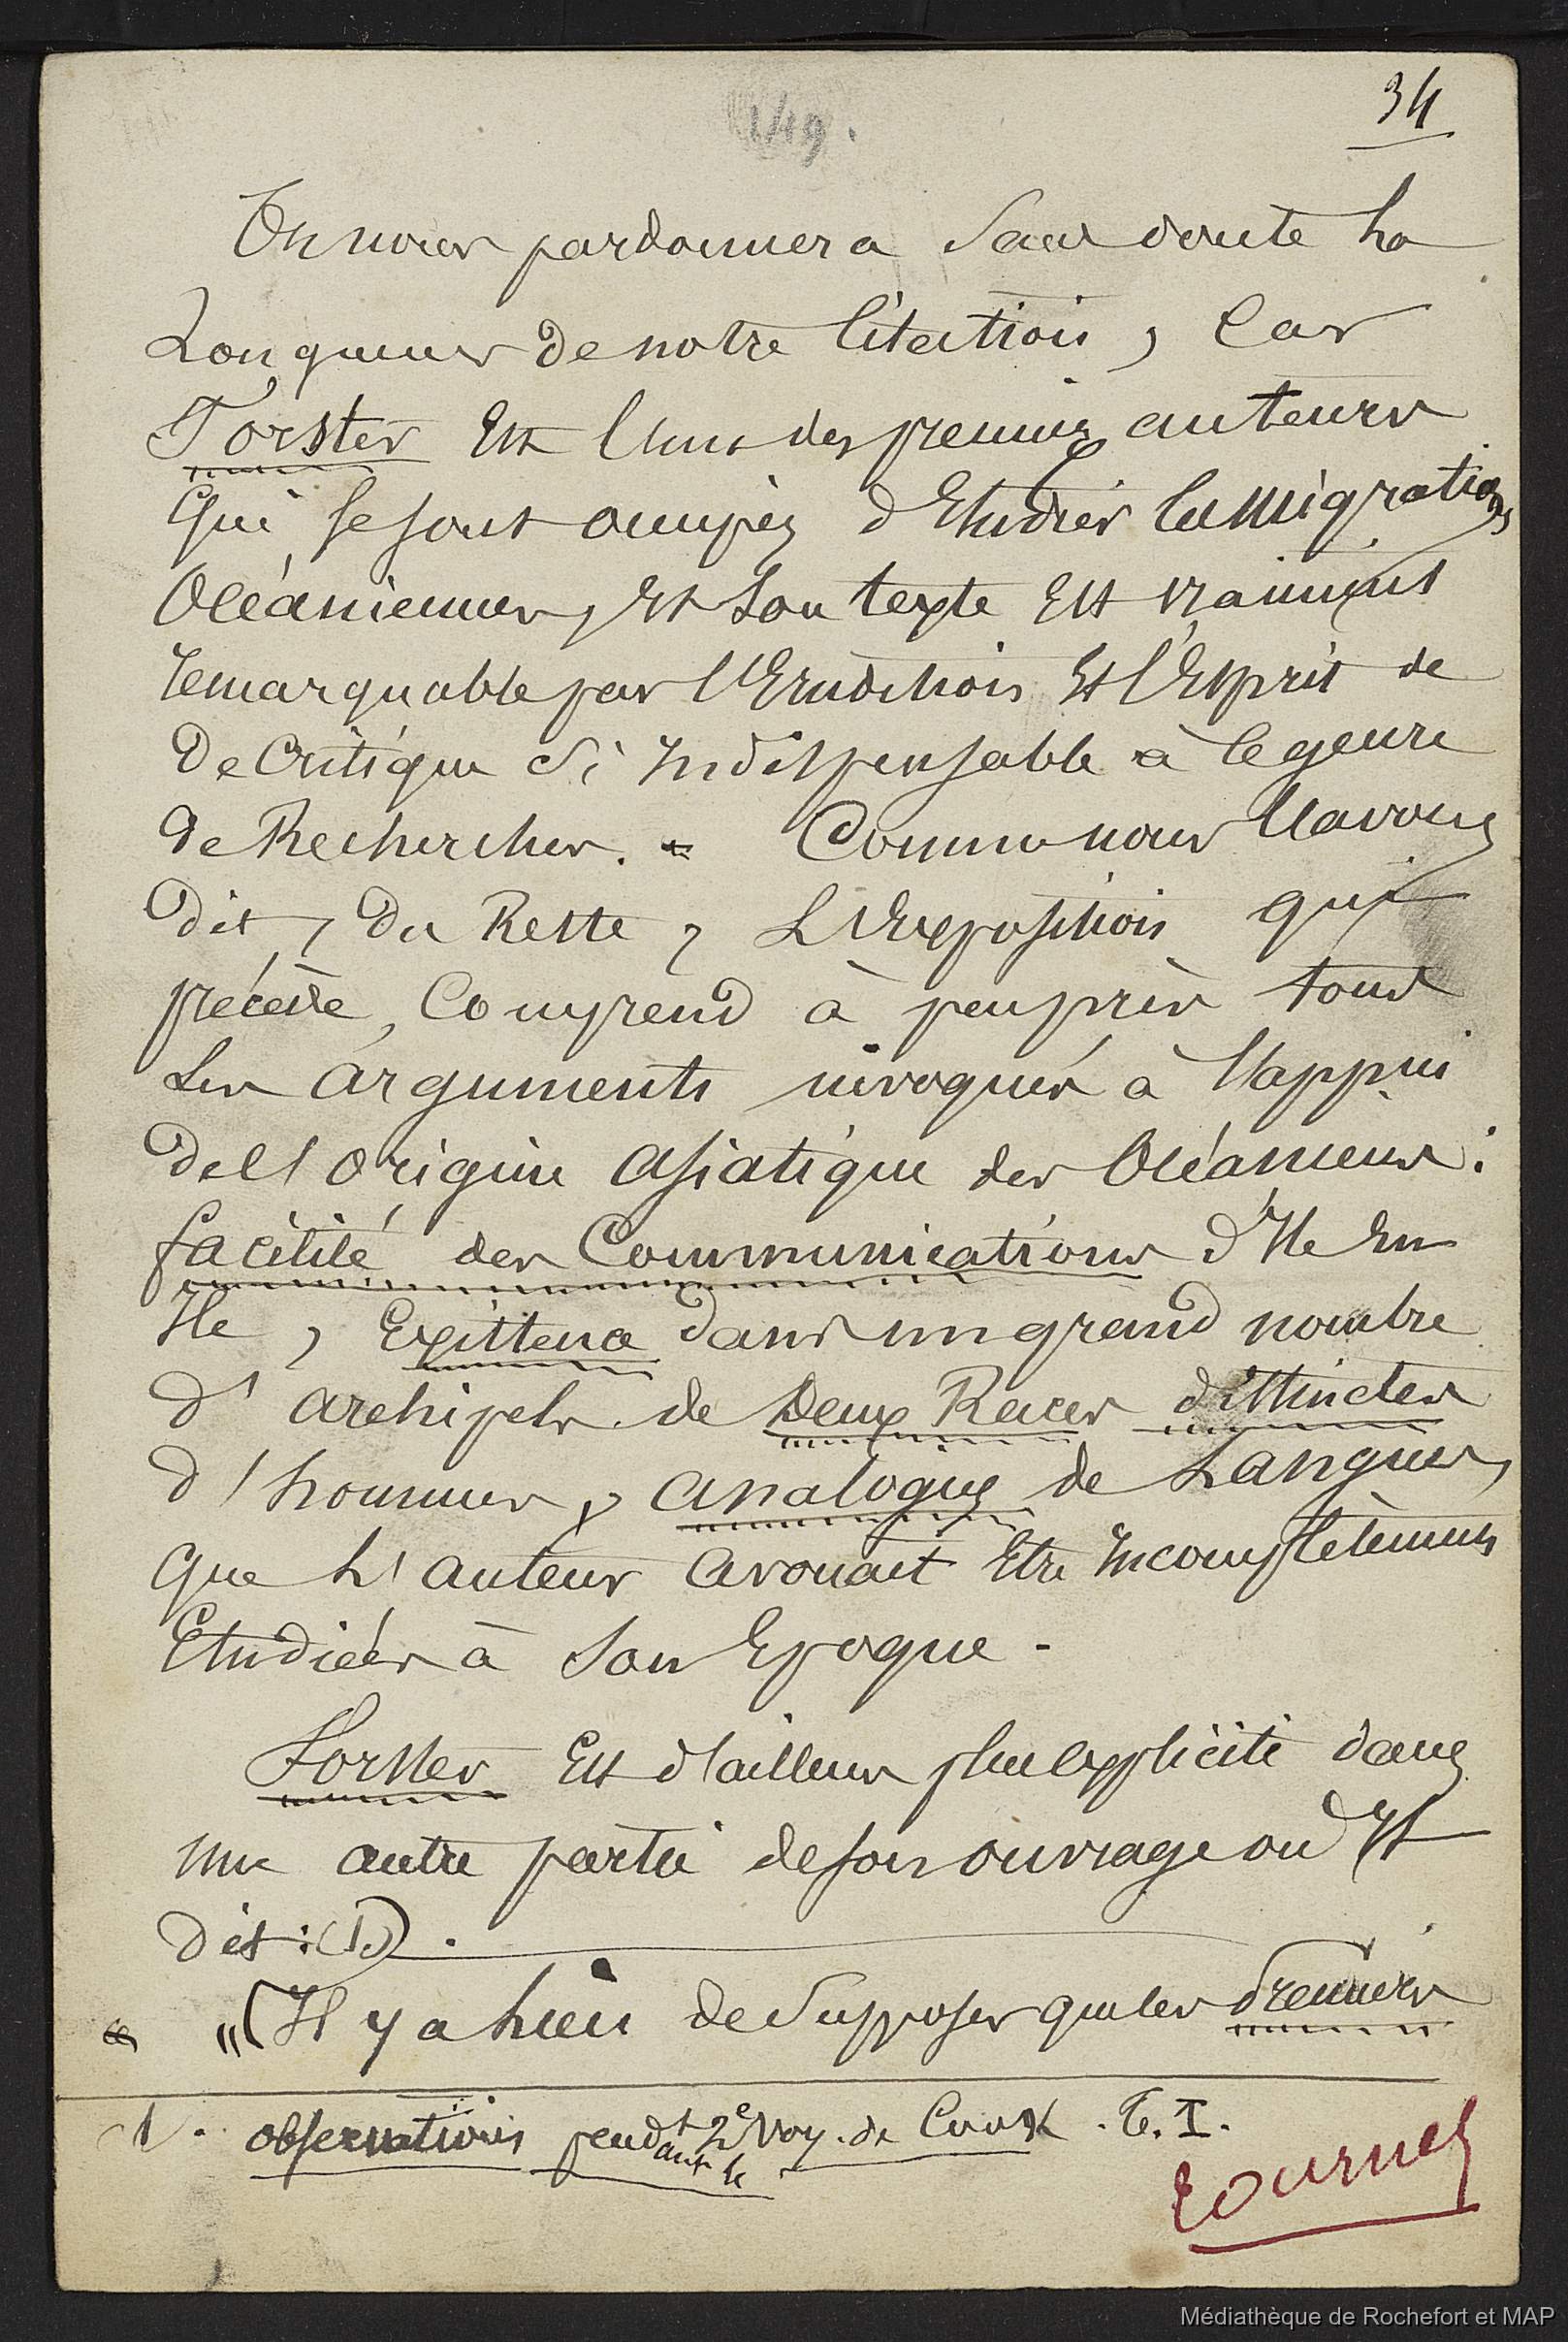 34
149.
On nous pardonnera sans doute la
Longueur de notre Citation, Car
Forster Est l'un des premiers auteurs
Qui se sont occupés d'Etudier les Migrations
Océaniennes, Et son texte Est vraiment
remarquable par l'Erudition Et l'Esprit de
De Critique si Indispensable à ce genre
de Recherches. Comme nous l'avons
dit, du Reste, L'Exposition qui
précède, Comprend à peu près tous
Les arguments invoqués à l'appui
de l'origine asiatique des Océaniens :
facilité des Communications d'Ile En
Ile, Existence dans un grand nombre
d'archipels de Deux Races distinctes
d'hommes, analogies de Langues,
Que l'auteur avouait Etre Incomplètement
Etudiées à son Epoque.
Forster Est d'ailleurs plus explicite dans
une autre partie de son ouvrage où Il
dit : (1).
"(Il y a lieu de supposer que les premiers
1. observations pendant le 2e voy. de Cook. T. I.
tournez
Médiathèque de Rochefort et MAP